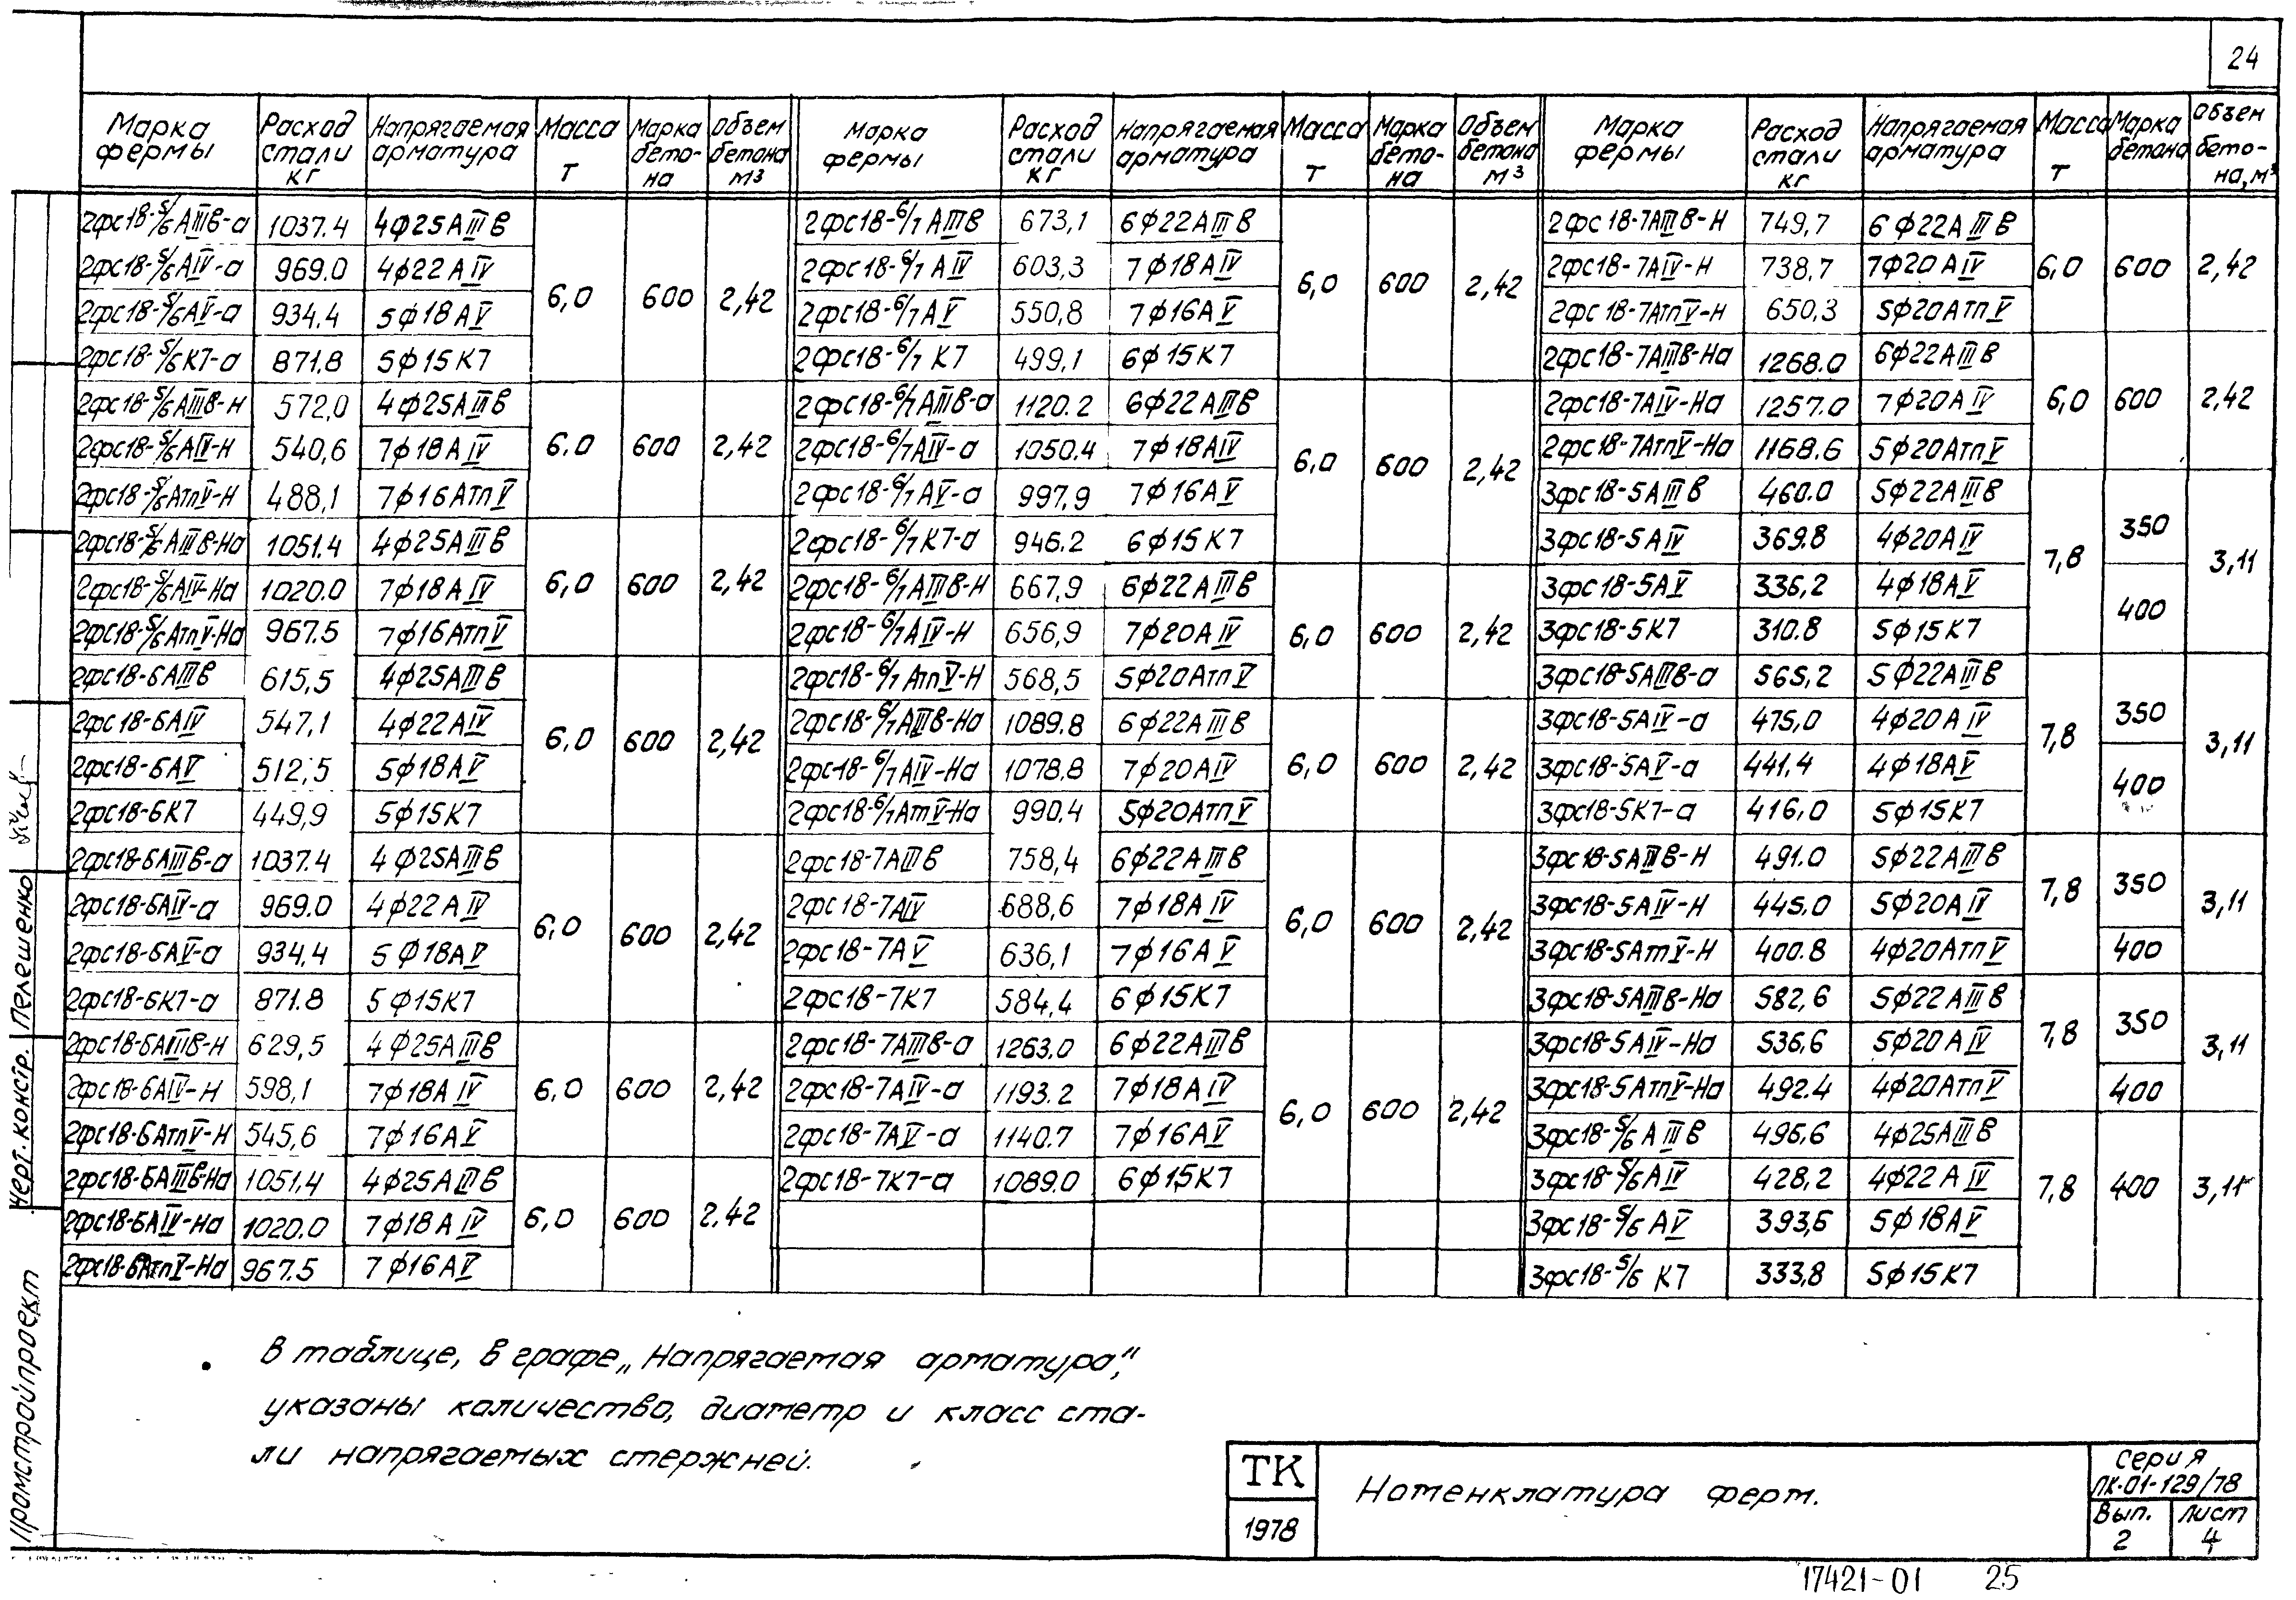 24
Марка фермы | Расход стали кг | Напрягаемая арматура | Масса т | Марка бето-на | Объем бетона м³ | Марка фермы | Расход стали кг | Напрягаемая арматура | Масса т | Марка бето-на | Объем бетона м³ | Марка фермы | Расход стали кг | Напрягаемая арматура | Масса т | Марка бетона | Объем бето-на, м³
2фс18-5/6АIIIв-а | 1037.4 | 4ф25АIIIв | 6,0 | 600 | 2,42
2фс18-5/6АIV-а | 969.0 | 4ф22АIV
2фс18-5/6АV-а | 934.4 | 5ф18АV
2фс18-5/6К7-а | 871.8 | 5ф15К7
2фс18-5/6АIIIв-Н | 572,0 | 4ф25АIIIв | 6.0 | 600 | 2,42
2фс18-5/6АIV-Н | 540,6 | 7ф18АIV
2фс18-5/6АтпV-Н | 488,1 | 7ф16АтпV
2фс18-5/6АIIIв-На | 1051.4 | 4ф25АIIIв | 6,0 | 600 | 2,42
2фс18-5/6АIV-На | 1020.0 | 7ф18АIV
2фс18-5/6АтпV-На | 967.5 | 7ф16АтпV
2фс18-6АIIIв | 615,5 | 4ф25АIIIв | 6,0 | 600 | 2,42
2фс18-6АIV | 547,1 | 4ф22АIV
2фс18-6АV | 512,5 | 5ф18АV
2фс18-6К7 | 449,9 | 5ф15К7
2фс18-6АIIIв-а | 1037.4 | 4ф25АIIIв | 6,0 | 600 | 2,42
2фс18-6АIV-а | 969.0 | 4ф22АIV
2фс18-6АV-а | 934,4 | 5ф18АV
2фс18-6К7-а | 871.8 | 5ф15К7
2фс18-6АIIIв-Н | 629,5 | 4ф25АIIIв | 6,0 | 600 | 2,42
2фс18-6АIV-Н | 598,1 | 7ф18АIV
2фс18-6АтпV-Н | 545,6 | 7ф16АV
2фс18-6АIIIв-На | 1051,4 | 4ф25АIIIв | 6,0 | 600 | 2,42
2фс18-6АIV-На | 1020.0 | 7ф18АIV
2фс18-6АтпV-На | 967.5 | 7ф16АV
2фс18-6/7АIIIв | 673,1 | 6ф22АIIIв | 6,0 | 600 | 2,42
2фс18-6/7АIV | 603,3 | 7ф18АIV
2фс18-6/7АV | 550,8 | 7ф16АV
2фс18-6/7 К7 | 499,1 | 6ф15К7
2фс18-6/7АIIIв-а | 1120.2 | 6ф22АIIIв | 6,0 | 600 | 2,42
2фс18-6/7АIV-а | 1050.4 | 7ф18АIV
2фс18-6/7АV-а | 997,9 | 7ф16АV
2фс18-6/7К7-а | 946.2 | 6ф15К7
2фс18-6/7АIIIв-Н | 667,9 | 6ф22АIIIв | 6,0 | 600 | 2,42
2фс18-6/7АIV-Н | 656,9 | 7ф20АIV
2фс18-6/7АтпV-Н | 568,5 | 5ф20АтпV
2фс18-6/7АIIIв-На | 1089.8 | 6ф22АIIIв | 6,0 | 600 | 2,42
2фс18-6/7АIV-На | 1078.8 | 7ф20АIV
2фс18-6/7АтV-На | 990.4 | 5ф20АтпV
2фс18-7АIIIв | 758,4 | 6ф22АIIIв | 6,0 | 600 | 2,42
2фс18-7АIV | 688,6 | 7ф18АIV
2фс18-7АV | 636,1 | 7ф16АV
2фс18-7К7 | 584,4 | 6ф15К7
2фс18-7АIIIв-а | 1263,0 | 6ф22АIIIв | 6,0 | 600 | 2,42
2фс18-7АIV-а | 1193.2 | 7ф18АIV
2фс18-7АV-а | 1140.7 | 7ф16АV
2фс18-7К7-а | 1089.0 | 6ф15К7
2фс18-7АIIIв-Н | 749,7 | 6ф22АIIIв | 6,0 | 600 | 2,42
2фс18-7АIV-Н | 738,7 | 7ф20АIV
2фс18-7АтпV-Н | 650,3 | 5ф20АтпV
2фс18-7АIIIв-На | 1268.0 | 6ф22АIIIв | 6,0 | 600 | 2,42
2фс18-7АIV-На | 1257.0 | 7ф20АIV
2фс18-7АтпV-На | 1168.6 | 5ф20АтпV
3фс18-5АIIIв | 460.0 | 5ф22АIIIв | 7,8 | 350 | 3,11
3фс18-5АIV | 369.8 | 4ф20АIV
3фс18-5АV | 336,2 | 4ф18АV | 400
3фс18-5К7 | 310.8 | 5ф15К7
3фс18-5АIIIв-а | 565,2 | 5ф22АIIIв | 7,8 | 350 | 3,11
3фс18-5АIV-а | 475,0 | 4ф20АIV
3фс18-5АV-а | 441.4 | 4ф18АV | 400
3фс18-5К7-а | 416,0 | 5ф15К7
3фс18-5АIIIв-Н | 491.0 | 5ф22АIIIв | 7,8 | 350 | 3,11
3фс18-5АIV-Н | 445.0 | 5ф20АIV
3фс18-5АтV-Н | 400.8 | 4ф20АтпV | 400
3фс18-5АIIIв-На | 582,6 | 5ф22АIIIв | 7,8 | 350 | 3,11
3фс18-5АIV-На | 536,6 | 5ф20АIV
3фс18-5АтпV-На | 492.4 | 4ф20АтпV | 400
3фс18-5/6АIIIв | 496,6 | 4ф25АIIIв | 7,8 | 400 | 3,11
3фс18-5/6АIV | 428,2 | 4ф22АIV
3фс18-5/6АV | 393,6 | 5ф18АV
3фс18-5/6 К7 | 333,8 | 5ф15К7
В таблице, в графе „Напрягаемая арматура",
указаны количество, диаметр и класс ста-
ли напрягаемых стержней.
ТК
1978
Номенклатура ферм.
Серия
ПК-01-129/78
Вып.
2
Лист
4
17421-01 25
Промстройпроект
Черт. констр. Пелешенко